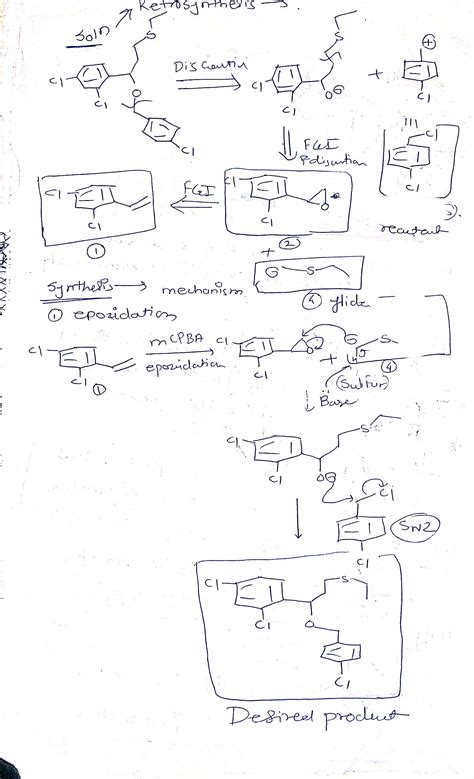 Retrosynthesis →.
Soln
S
Cl
Disconnection
Cl
S
⊕
Cl
O
Cl
OΘ
+
Cl
Cl
FGI
Disconnection
Cl
Cl
FGI
Cl
O
reactant
3).
Cl
Cl
①
②
+
Synthesis → mechanism
Θ S
④ ylide
① epoxidation
Cl
mCPBA
Cl
O
+
Θ
S
Cl
①
epoxidation
Cl
(Sulfur)
④
↓ Base
S
Cl
Cl
OΘ
Cl
SN2
Cl
Cl
S
Cl
O
Cl
Desired product